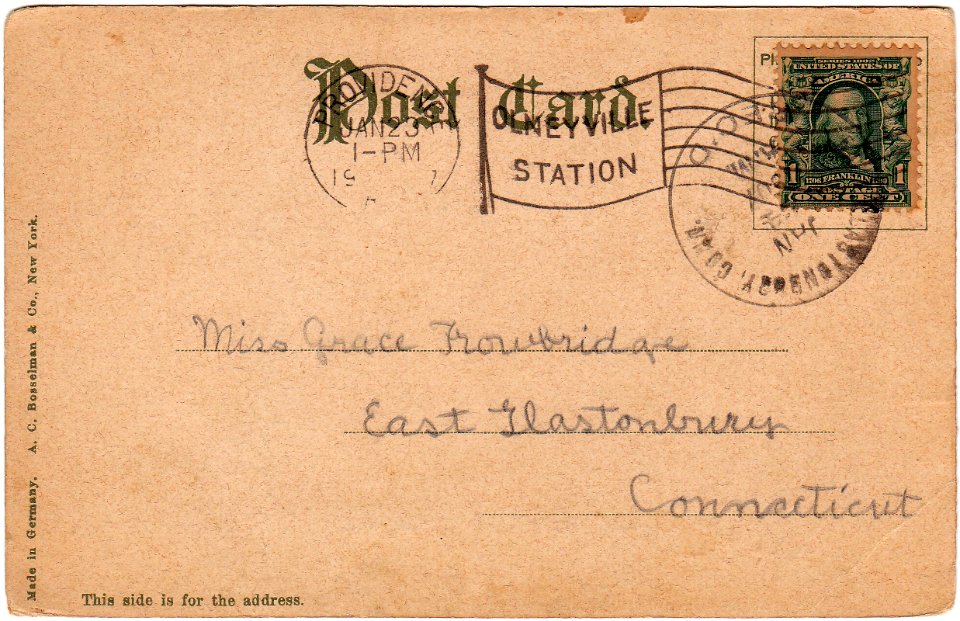 Post Card.
PROVIDENCE
JAN 23
1-PM
OLNEYVILLE
STATION
SERIES 1902
UNITED STATES OF
AMERICA
1 1706 FRANKLIN 1790 1
POSTAGE
ONE CENT
GLASTONBURY, CONN.
JAN
Miss Grace Trowbridge
East Glastonbury
Connecticut
Made in Germany. A. C. Bosselman & Co., New York.
This side is for the address.